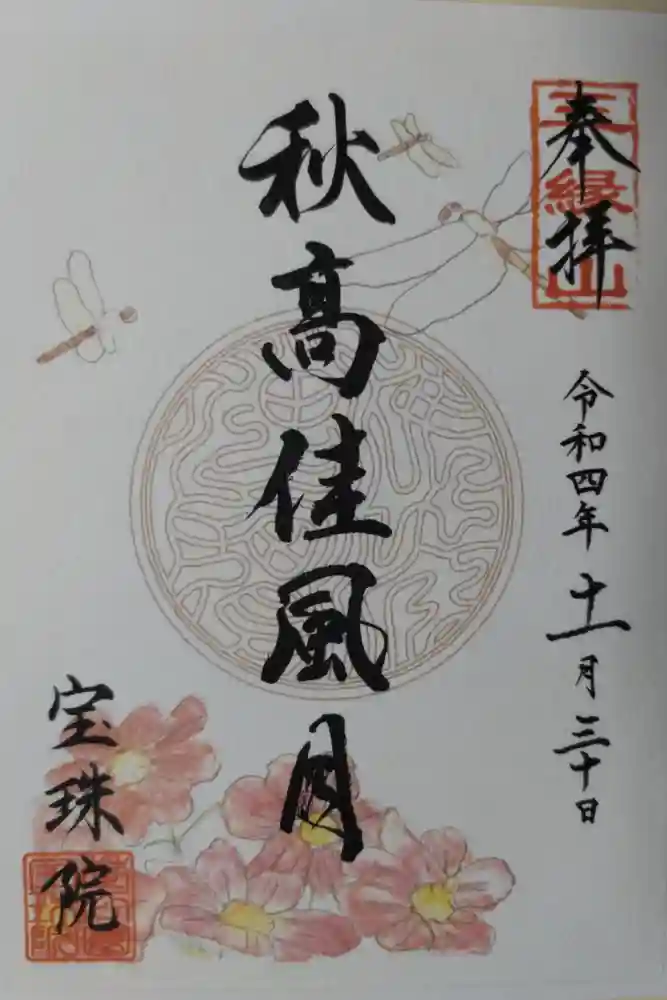 奉拝
三縁山
令和四年十一月三十日
秋高佳風月
宝珠院